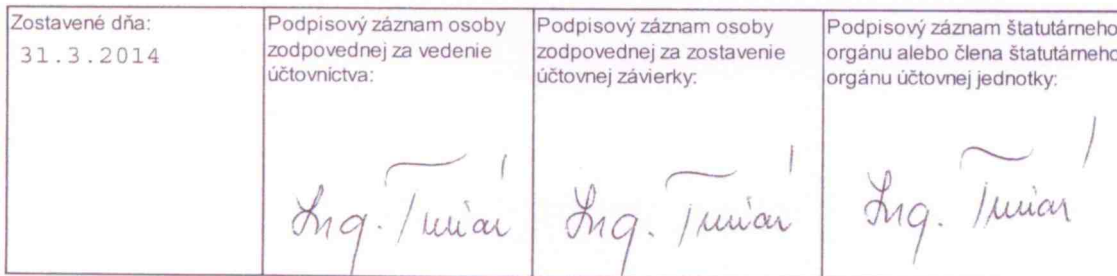 Zostavené dňa:
31.3.2014
Podpisový záznam osoby
zodpovednej za vedenie
účtovníctva:
Ing.
Podpisový záznam osoby
zodpovednej za zostavenie
účtovnej závierky:
Ing.
Podpisový záznam štatutárneho
orgánu alebo člena štatutárneho
orgánu účtovnej jednotky:
Ing.